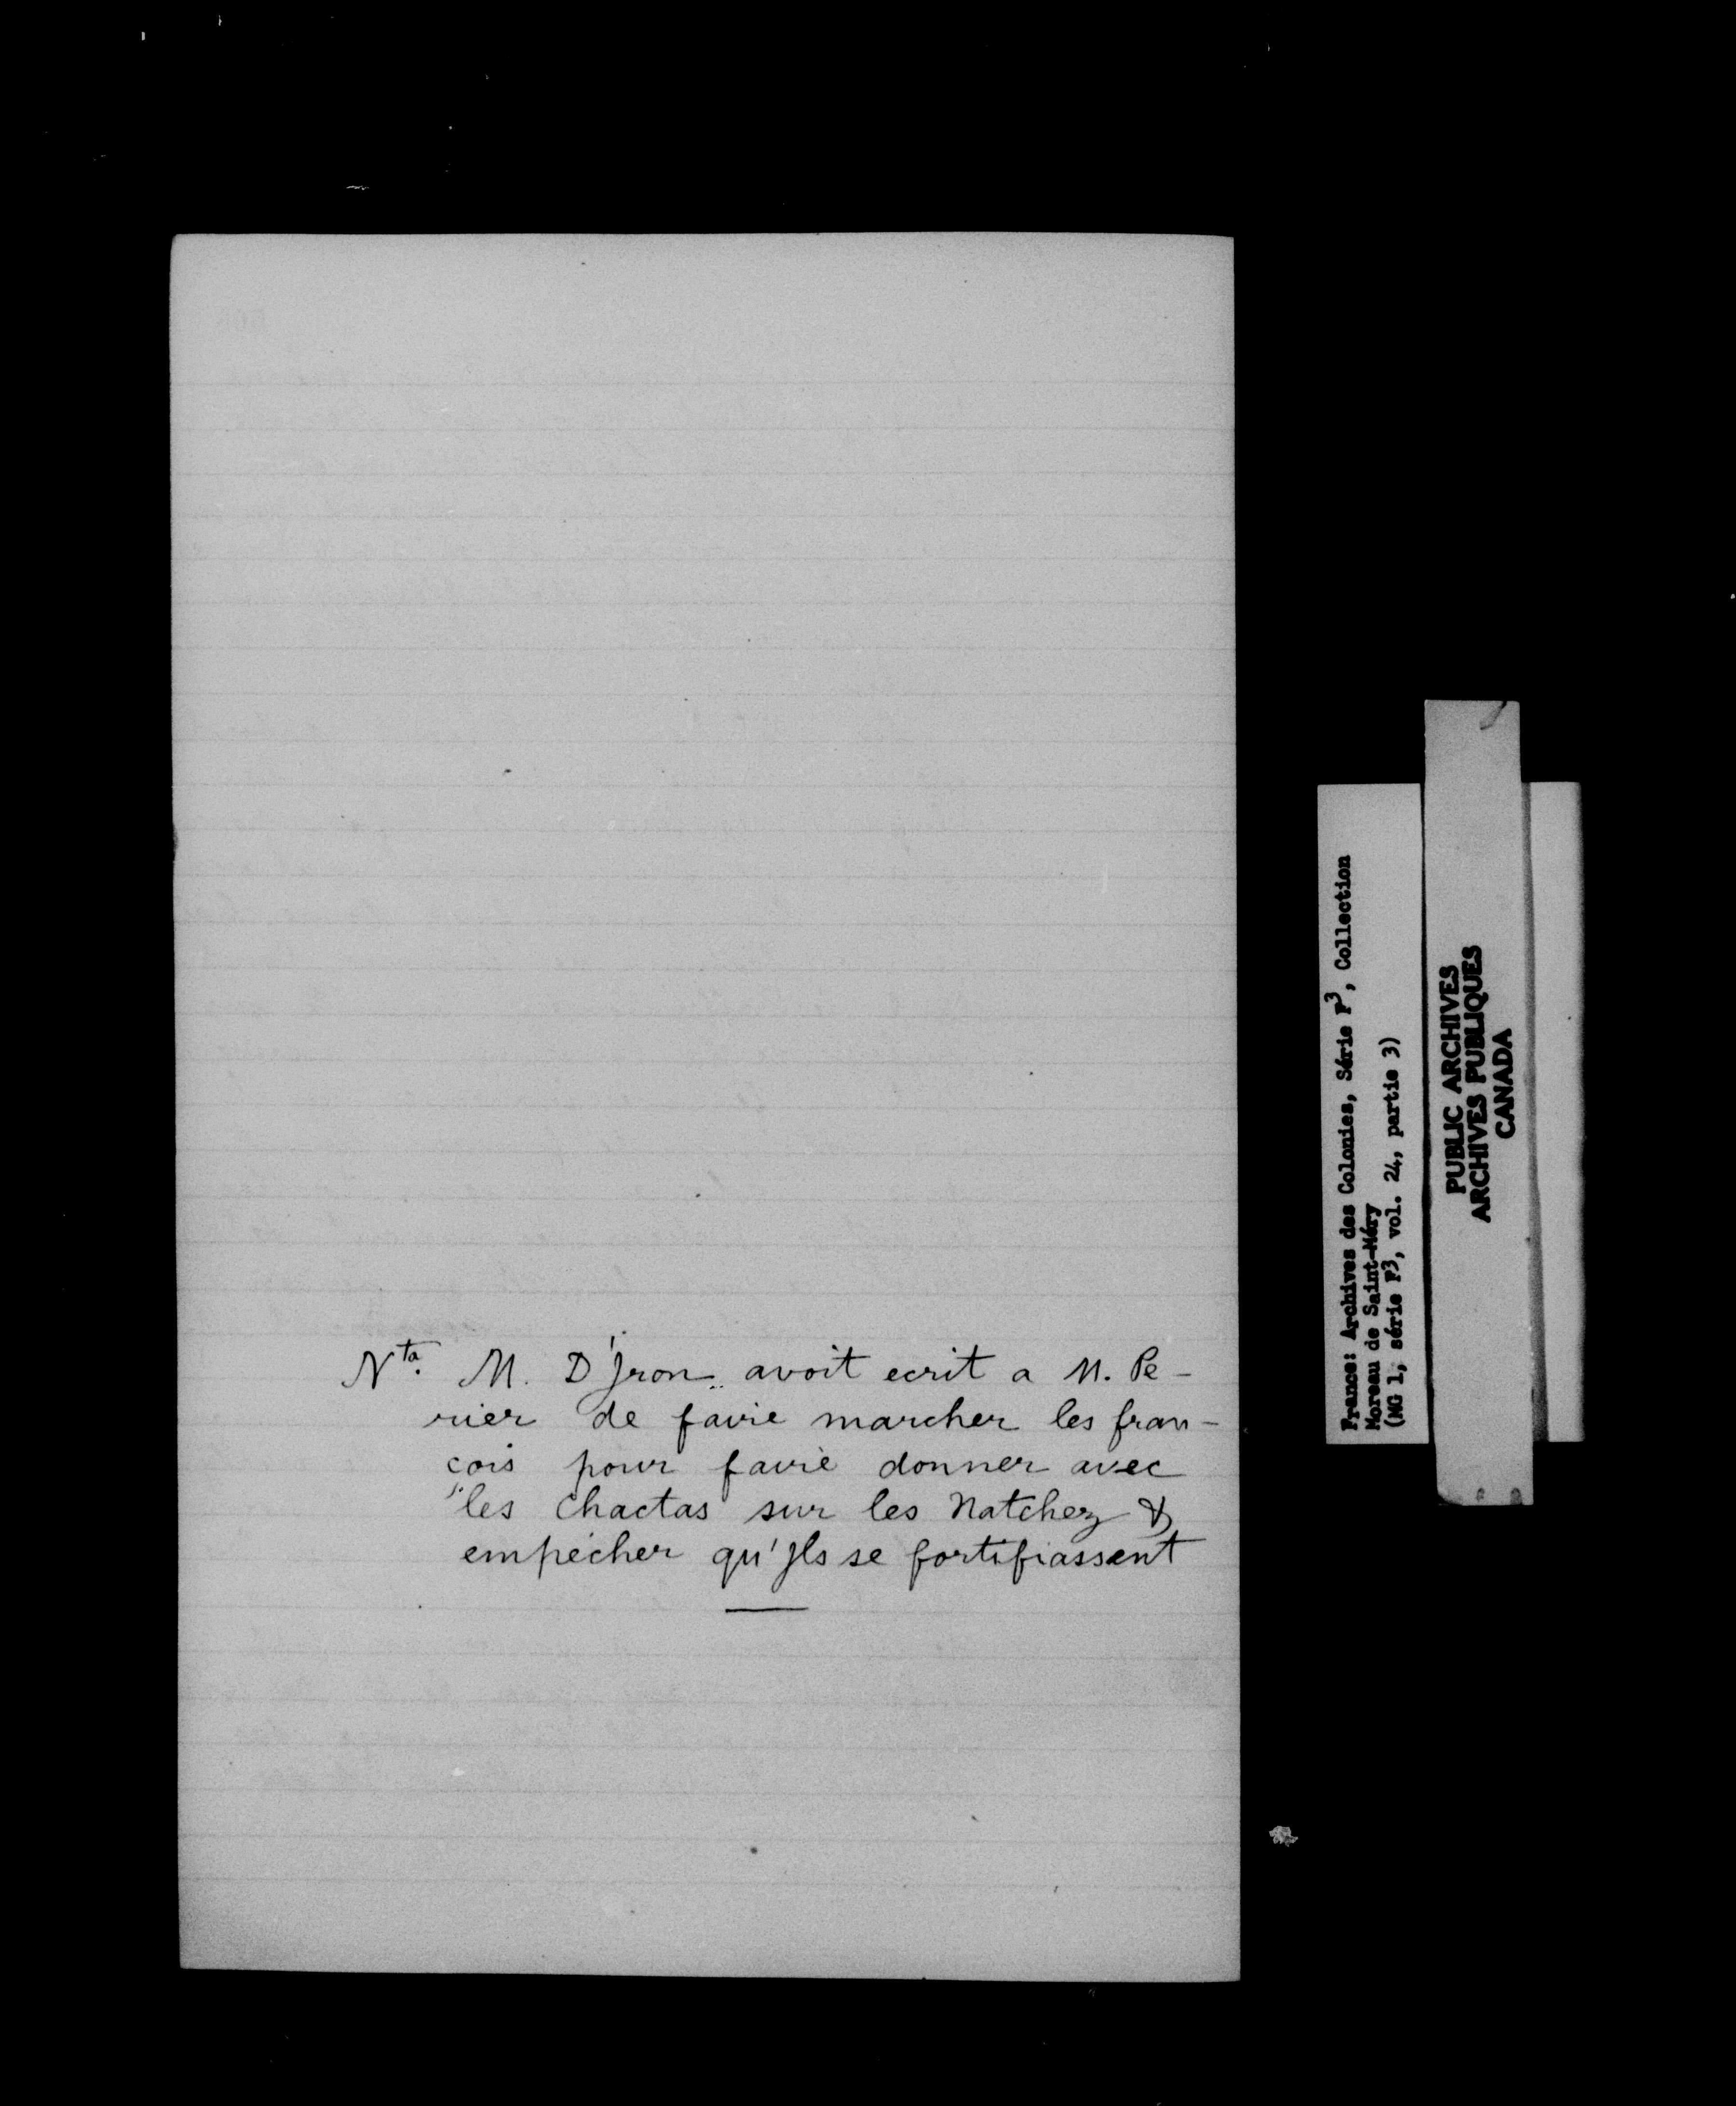 Nta. M. D'Jron avoit ecrit a M. Pe-
rier de faire marcher les fran-
cois pour faire donner avec
les Chactas sur les Natchez &
empêcher qu'Jls se fortifiassent
France: Archives des Colonies, Série F3, Collection
Moreau de Saint-Méry
(MG 1, série F3, vol. 24, partie 3)
PUBLIC ARCHIVES
ARCHIVES PUBLIQUES
CANADA